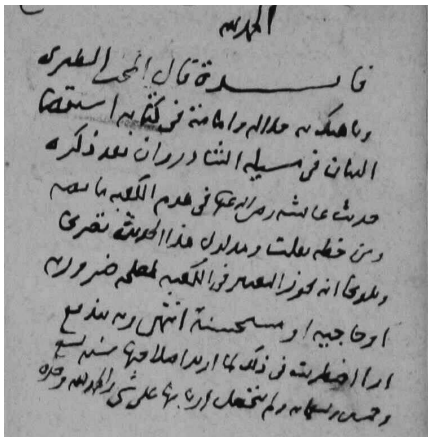 الحمد لله
فائدة قال المحب الطبري
وناهيك به جلالة وامامة في كتابه استقصا
البيان في مسيلة الشاذروان بعد ذكره
حديث عائشة رضي الله عنها في هدم الكعبة ما نصه
ومن خطه نقلت ومدلول هذا الحديث تصريحا
وتلويحا انه يجوز التغيير في الكعبة لمصلحة ضرورية
او حاجية او مستحسنة انتهى وبه يندفع
اراء اضطربت في ذلك لما اريد اصلاحها سنة تسع
وخمسين وتسعماية ولم يتحصل اربابها على شي والحمد لله وحده